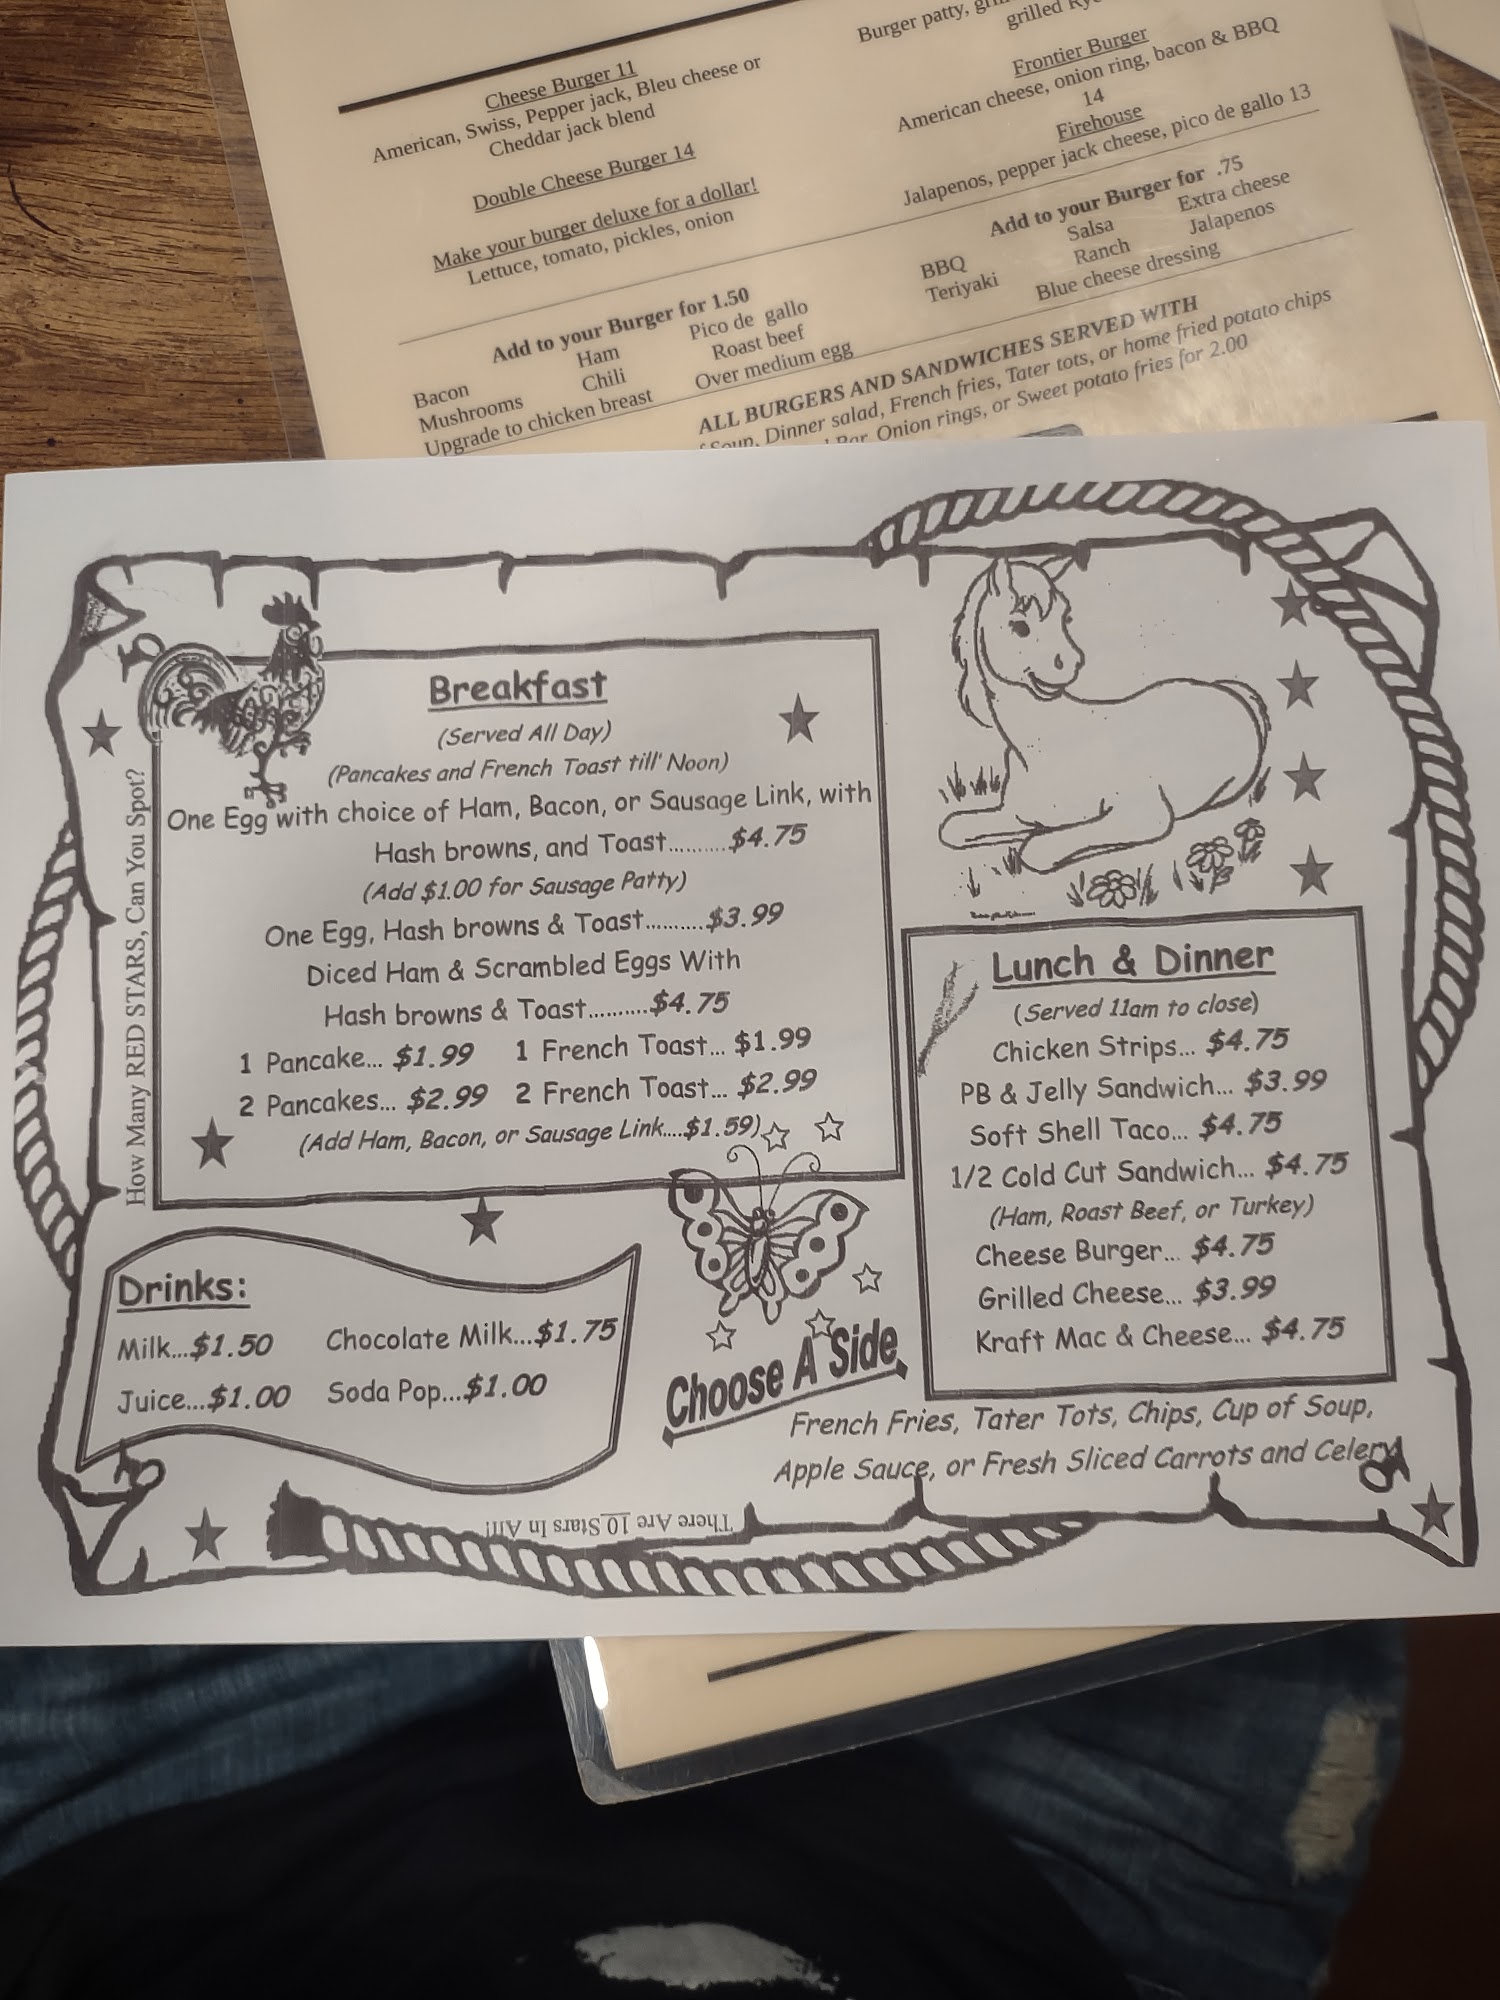 Cheese Burger 11
American, Swiss, Pepper jack, Bleu cheese or
Cheddar jack blend
Double Cheese Burger 14
Make your burger deluxe for a dollar!
Lettuce, tomato, pickles, onion
Add to your Burger for 1.50
Bacon Ham Pico de gallo
Mushrooms Chili Roast beef
Upgrade to chicken breast Over medium egg
Burger patty,
grilled
Frontier Burger
American cheese, onion ring, bacon & BBQ
14
Firehouse
Jalapenos, pepper jack cheese, pico de gallo 13
Add to your Burger for .75
BBQ Salsa Extra cheese
Teriyaki Ranch Jalapenos
Blue cheese dressing
ALL BURGERS AND SANDWICHES SERVED WITH
Soup, Dinner salad, French fries, Tater tots, or home fried potato chips
Bar, Onion rings, or Sweet potato fries for 2.00
How Many RED STARS, Can You Spot?
Breakfast
(Served All Day)
(Pancakes and French Toast till' Noon)
One Egg with choice of Ham, Bacon, or Sausage Link, with
Hash browns, and Toast..........$4.75
(Add $1.00 for Sausage Patty)
One Egg, Hash browns & Toast..........$3.99
Diced Ham & Scrambled Eggs With
Hash browns & Toast..........$4.75
1 Pancake... $1.99 1 French Toast... $1.99
2 Pancakes... $2.99 2 French Toast... $2.99
(Add Ham, Bacon, or Sausage Link....$1.59)
Drinks:
Milk...$1.50 Chocolate Milk...$1.75
Juice...$1.00 Soda Pop...$1.00
Lunch & Dinner
(Served 11am to close)
Chicken Strips... $4.75
PB & Jelly Sandwich... $3.99
Soft Shell Taco... $4.75
1/2 Cold Cut Sandwich... $4.75
(Ham, Roast Beef, or Turkey)
Cheese Burger... $4.75
Grilled Cheese... $3.99
Kraft Mac & Cheese... $4.75
Choose A Side
French Fries, Tater Tots, Chips, Cup of Soup,
Apple Sauce, or Fresh Sliced Carrots and Celery
There Are 10 Stars In All!